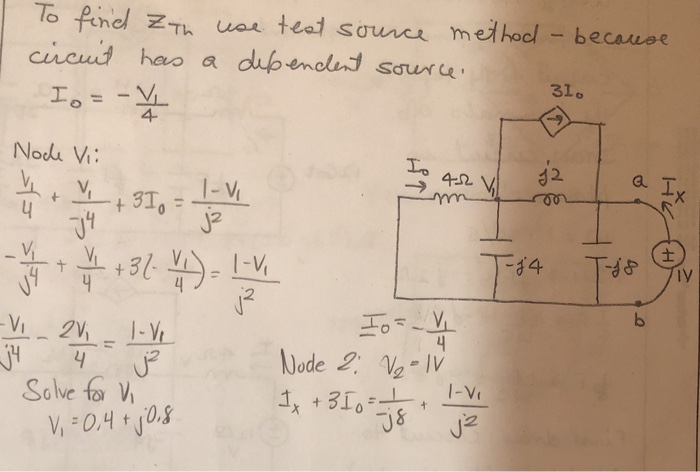 To find Z_Th use test source method - because
circuit has a dependent source.
I₀ = - V₁/4
Node V₁:
V₁/4 + V₁/-j4 + 3I₀ = 1-V₁/j2
-V₁/j4 + V₁/4 + 3(- V₁/4) = 1-V₁/j2
-V₁/j4 - 2V₁/4 = 1-V₁/j2
Solve for V₁
V₁ = 0.4 + j0.8
3I₀
I₀ 4Ω V₁ j2 a Iₓ
-j4 -j8 ± 1V
b
I₀ = - V₁/4
Node 2: V₂ = 1V
Iₓ + 3I₀ = 1/-j8 + 1-V₁/j2